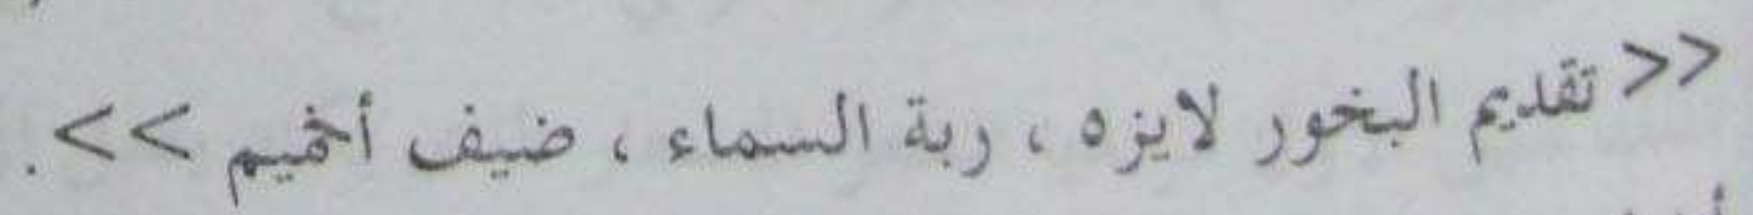 << تقديم البخور لايزه ، ربة السماء ، ضيف أخميم >> .